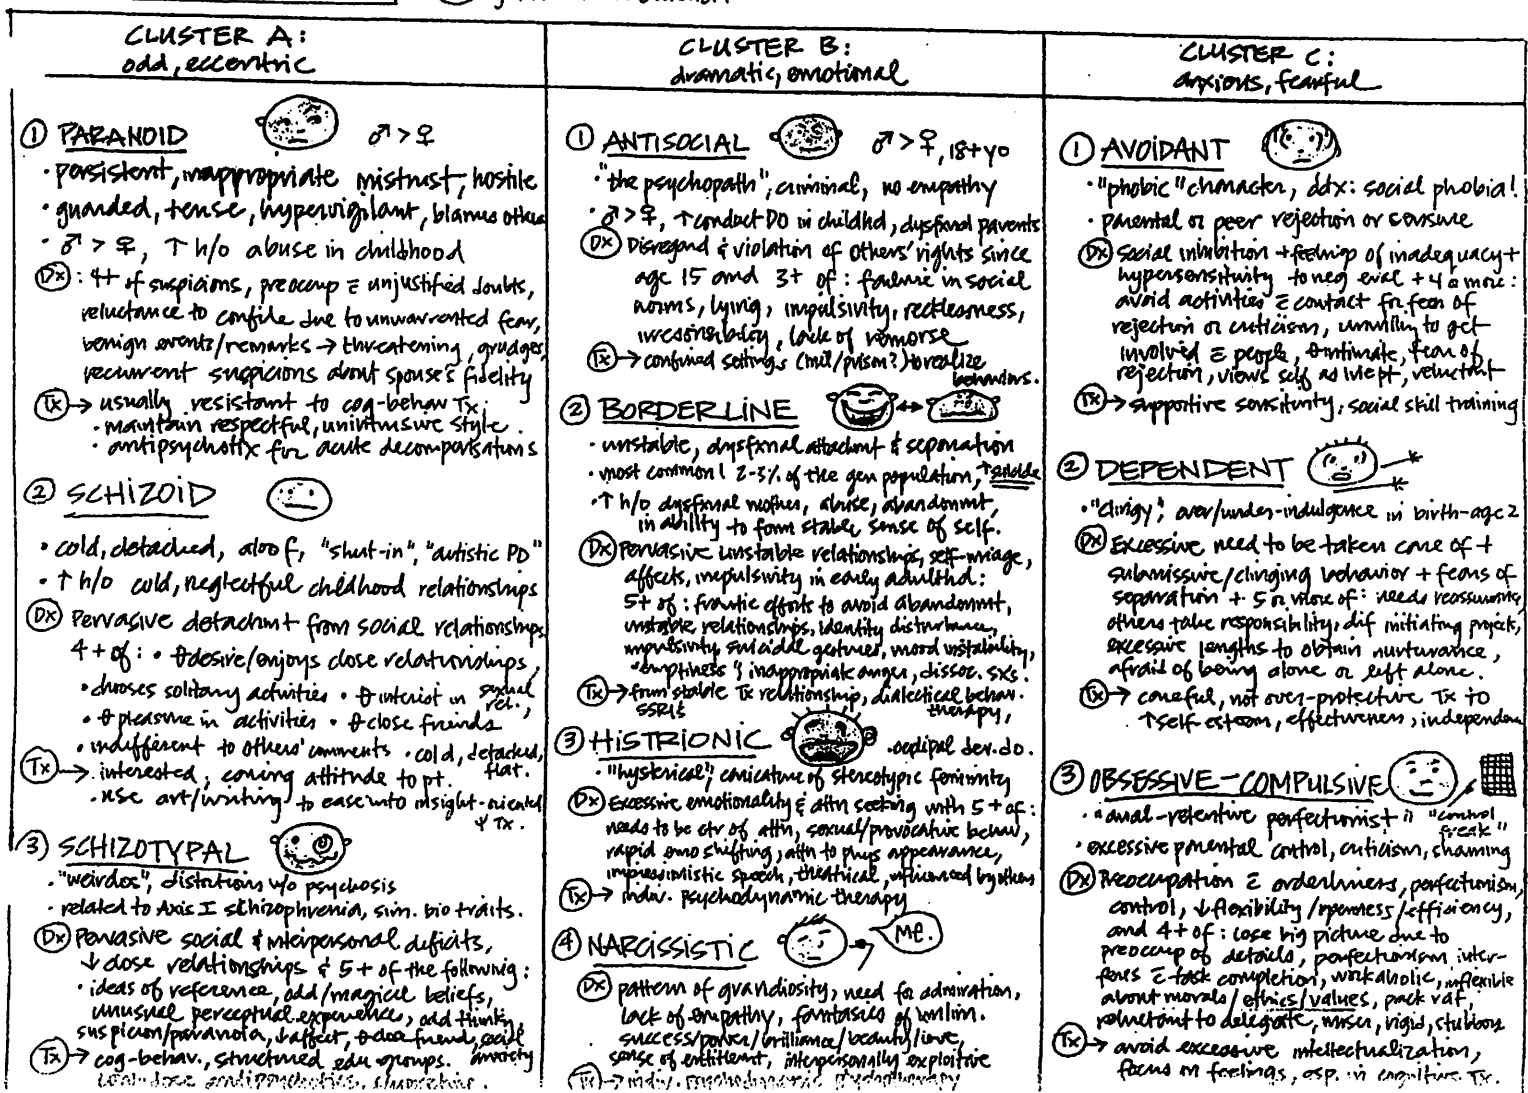 CLUSTER A:
odd, eccentric
① PARANOID ♂ > ♀
· persistent, inappropriate mistrust, hostile
· guarded, tense, hypervigilant, blames others
· ♂ > ♀, ↑ h/o abuse in childhood
Dx: 4+ of suspicions, preoccup c̄ unjustified doubts,
reluctance to confide due to unwarranted fear,
benign events/remarks → threatening, grudges,
recurrent suspicions about spouse's fidelity
Tx → usually resistant to cog-behav Tx.
· maintain respectful, unintrusive style.
· antipsychotix for acute decompensations
② SCHIZOID
· cold, detached, aloof, "shut-in", "autistic PD"
· ↑ h/o cold, neglectful childhood relationships
Dx Pervasive detachmt from social relationships
4+ of: · θ desire/enjoys close relationships,
· chooses solitary activities · θ interest in sexual rel.,
· θ pleasure in activities · θ close friends
· indifferent to others' comments · cold, detached, flat.
Tx → · interested, caring attitude to pt.
· use art/writing to ease into insight-oriented
ψ Tx.
3) SCHIZOTYPAL
· "weirdos", distortions w/o psychosis
· related to Axis I schizophrenia, sim. bio traits.
Dx Pervasive social & interpersonal deficits,
↓ close relationships & 5+ of the following:
· ideas of reference, odd/magical beliefs,
unusual perceptual experience, odd thinkg
suspicion/paranoia, ↓ affect, θ close friend, social anxiety
Tx → cog-behav., structured edu groups.
low-dose antipsychotics, supportive.
CLUSTER B:
dramatic, emotional
① ANTISOCIAL ♂ > ♀, 18+ yo
· "the psychopath", criminal, no empathy
· ♂ > ♀, ↑ conduct DO in childhd, dysfxnal parents
Dx Disregard & violation of others' rights since
age 15 and 3+ of: failure in social
norms, lying, impulsivity, recklessness,
irresponsibility, lack of remorse
Tx → confined settings (mil/prison?) to realize
behaviors.
② BORDERLINE
· unstable, dysfxnal attachmt & separation
· most common! 2-3% of the gen population, ↑ suicide
· ↑ h/o dysfxnal mother, abuse, abandonmt,
inability to form stable sense of self.
Dx Pervasive unstable relationships, self-image,
affects, impulsivity in early adulthd:
5+ of: frantic efforts to avoid abandonmt,
unstable relationships, identity disturbance,
impulsivity, suicidal gestures, mood instability,
"emptiness", inappropriate anger, dissoc. sxs.
Tx → form stable Tx relationship, dialectical behav.
SSRIs therapy,
③ HISTRIONIC · oedipal dev. do.
· "hysterical", caricature of stereotypic feminity
Dx Excessive emotionality & attn seeking with 5+ of:
needs to be ctr of attn, sexual/provocative behav,
rapid emo shifting, attn to phys appearance,
impressionistic speech, theatrical, influenced by others
Tx → indiv. psychodynamic therapy
④ NARCISSISTIC Me.
Dx pattern of grandiosity, need for admiration,
lack of empathy, fantasies of unlim.
success/power/brilliance/beauty/love,
sense of entitlemt, interpersonally exploitive
Tx → indiv. psychodynamic psychotherapy
CLUSTER C:
anxious, fearful
① AVOIDANT
· "phobic" character, ddx: social phobia!
· parental or peer rejection or censure
Dx Social inhibition + feelings of inadequacy +
hypersensitivity to neg eval + 4 or more:
avoid activities c̄ contact for fear of
rejection or criticism, unwilling to get
involved c̄ people, θ intimate, fear of
rejection, views self as inept, reluctant
Tx → supportive sensitivity, social skill training
② DEPENDENT
· "clingy", over/under-indulgence in birth-age 2
Dx Excessive need to be taken care of +
submissive/clinging behavior + fears of
separation + 5 or more of: needs reassurance,
others take responsibility, dif initiating projects,
excessive lengths to obtain nurturance,
afraid of being alone or left alone.
Tx → careful, not over-protective Tx to
↑ self-esteem, effectiveness, independen
③ OBSESSIVE-COMPULSIVE
· "anal-retentive perfectionist" "control freak"
· excessive parental control, criticism, shaming
Dx Preoccupation c̄ orderliness, perfectionism,
control, ↓ flexibility/openness/efficiency,
and 4+ of: lose big picture due to
preoccup of details, perfectionism inter-
feres c̄ task completion, workaholic, inflexible
about morals/ethics/values, pack rat,
reluctant to delegate, miser, rigid, stubborn
Tx → avoid excessive intellectualization,
focus on feelings, esp. in cognitive Tx.